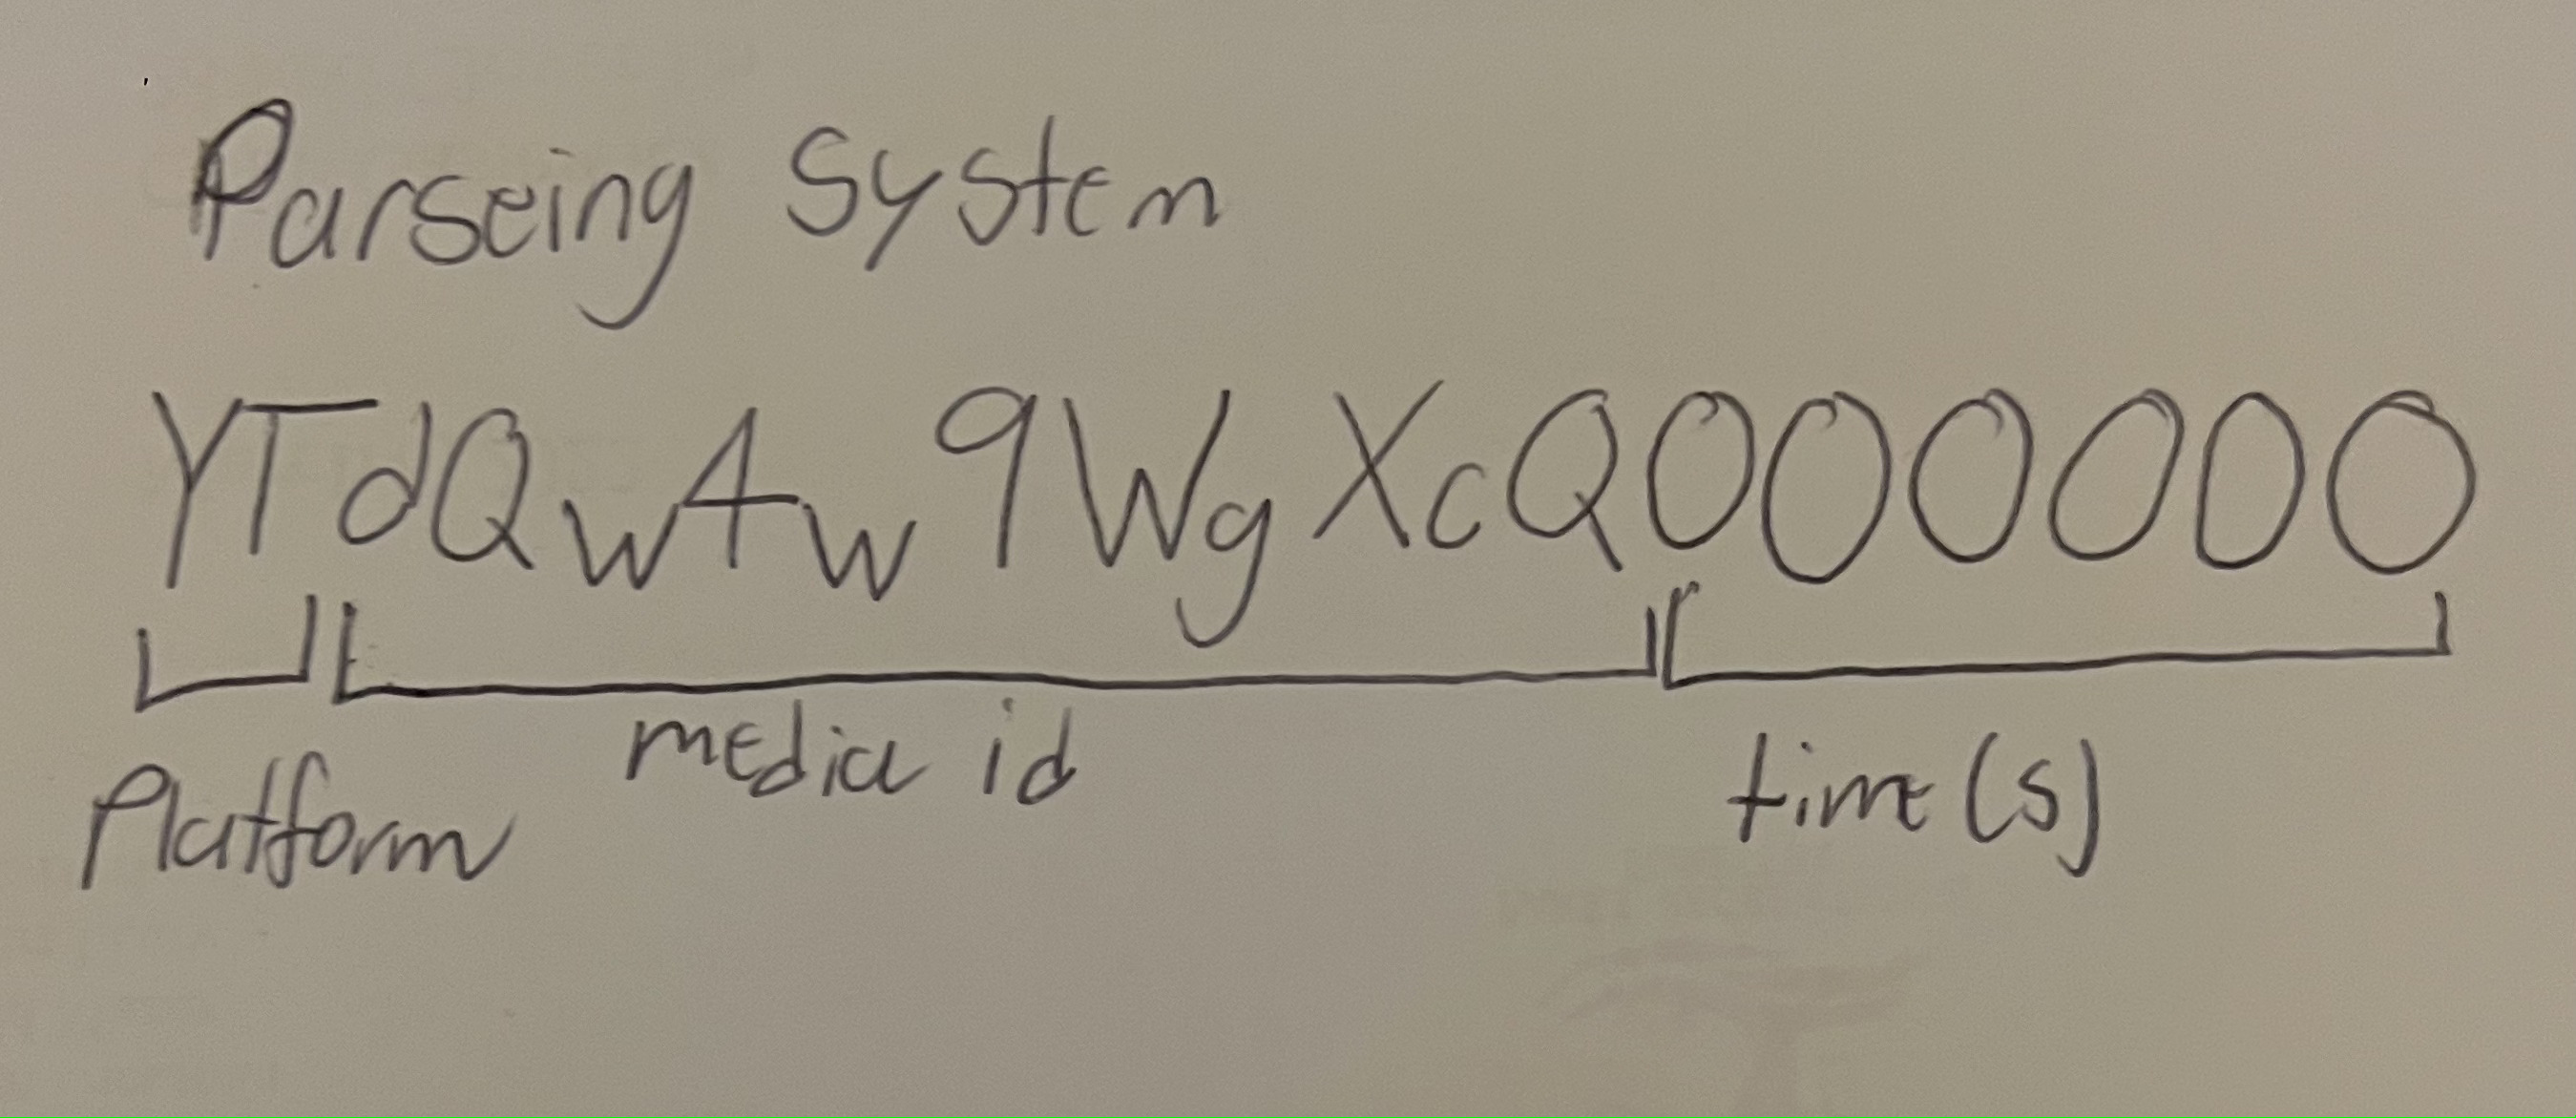 Parseing System
YTdQw4w9WgXcQ000000
Platform
media id
time (s)